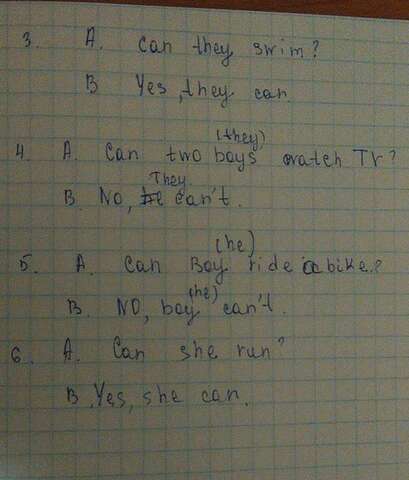 3. A. Can they swim?
B Yes, they can.
(they)
4. A. Can two boys watch TV?
They
B. No, he can't.
(he)
5. A. Can Boy ride a bike?
(he)
B. NO, boy can't.
6. A. Can she run?
B. Yes, she can.